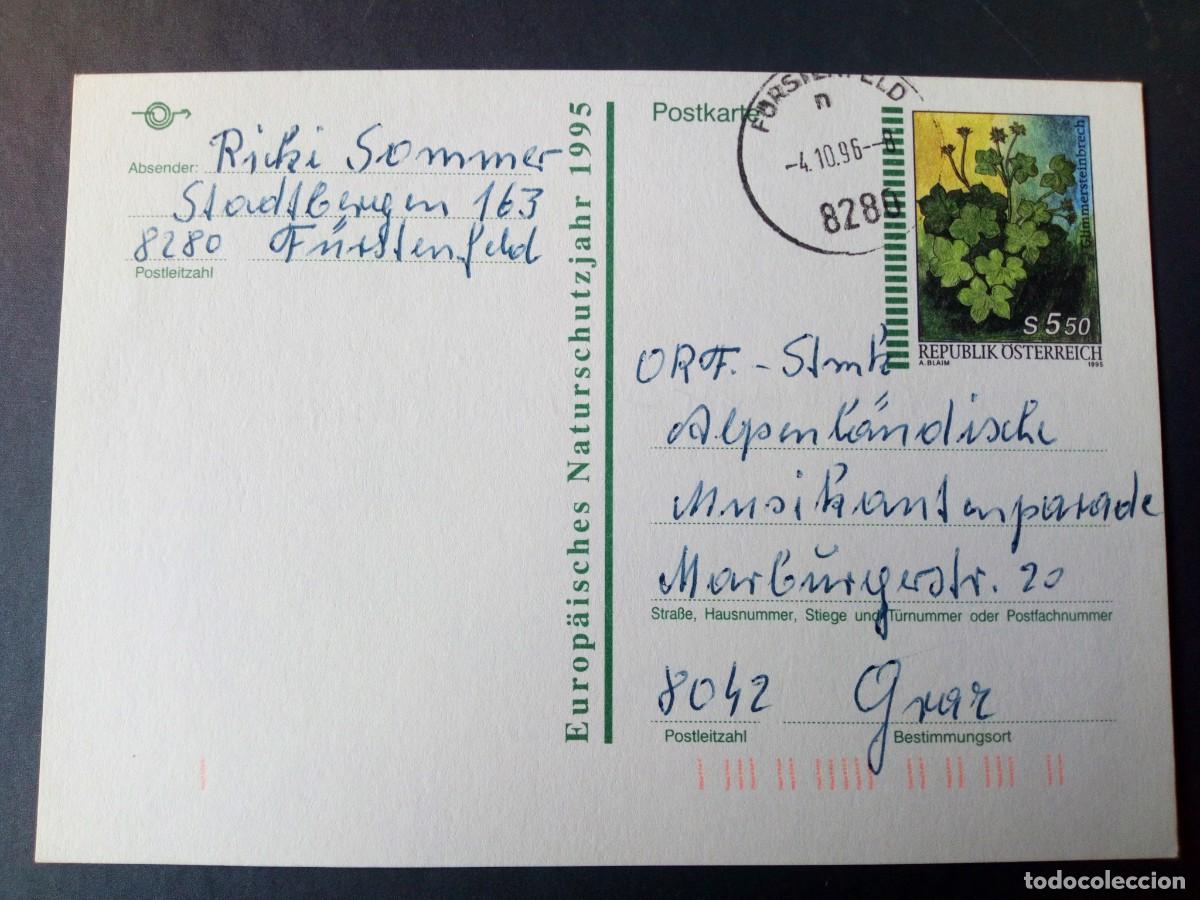 Absender: Ricki Sommer
Stadtbergen 163
8280 Fürstenfeld
Postleitzahl
Europäisches Naturschutzjahr 1995
Postkarte
FÜRSTENFELD
n
-4.10.96-8
8280
Glimmersteinbrech
S 5 50
REPUBLIK ÖSTERREICH
A. BLAIM 1995
ORF.-
Alpenländische
Musikantenparade
Marburgerstr. 20
Straße, Hausnummer, Stiege und Türnummer oder Postfachnummer
8042 Graz
Postleitzahl Bestimmungsort
todocoleccion